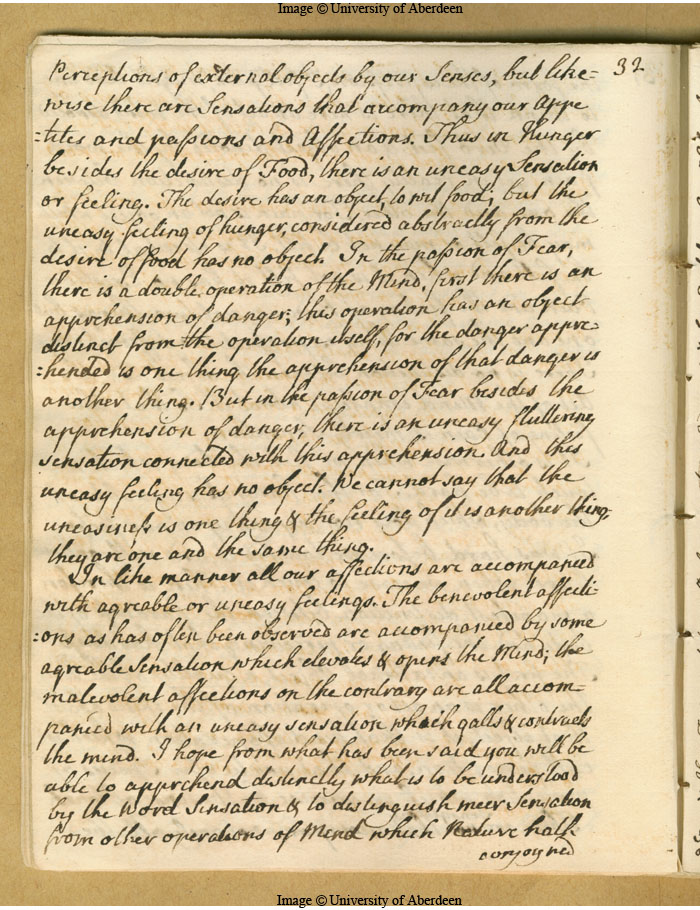 Image © University of Aberdeen
32
Perceptions of external objects by our Senses, but like=
wise there are Sensations that accompany our Appe
=tites and passions and Affections. Thus in Hunger
besides the desire of Food, there is an uneasy Sensation
or feeling. The desire has an object, to wit food; but the
uneasy feeling of hunger, considered abstractly from the
desire of food has no object. In the passion of Fear,
there is a double operation of the Mind, first there is an
apprehension of danger; this operation has an object
distinct from the operation itself, for the danger appre=
=hended is one thing the apprehension of that danger is
another thing. But in the passion of Fear besides the
apprehension of danger, there is an uneasy fluttering
sensation connected with this apprehension. And this
uneasy feeling has no object. We cannot say that the
uneasiness is one thing & the feeling of it is another thing,
they are one and the same thing.
In like manner all our affections are accompanied
with agreable or uneasy feelings. The benevolent affecti-
=ons as has often been observed are accompanied by some
agreable Sensation which elevates & opens the Mind; the
malevolent affections on the contrary are all accom=
panied with an uneasy sensation which galls & contracts
the mind. I hope from what has been said you will be
able to apprehend distinctly what is to be understood
by the Word Sensation & to distinguish meer Sensation
from other operations of Mind which Nature hath
conjoyned
Image © University of Aberdeen